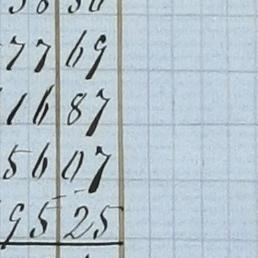 77 69
16 87
56 07
95 25